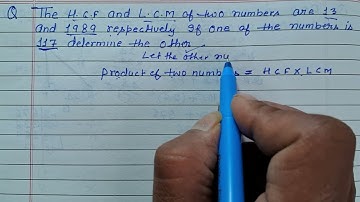 Q The H.C.F and L.C.M of two numbers are 13
and 1989 respectively If one of the numbers is
117 determine the other.
Let the other nu
Product of two numbers = H C F X L C M